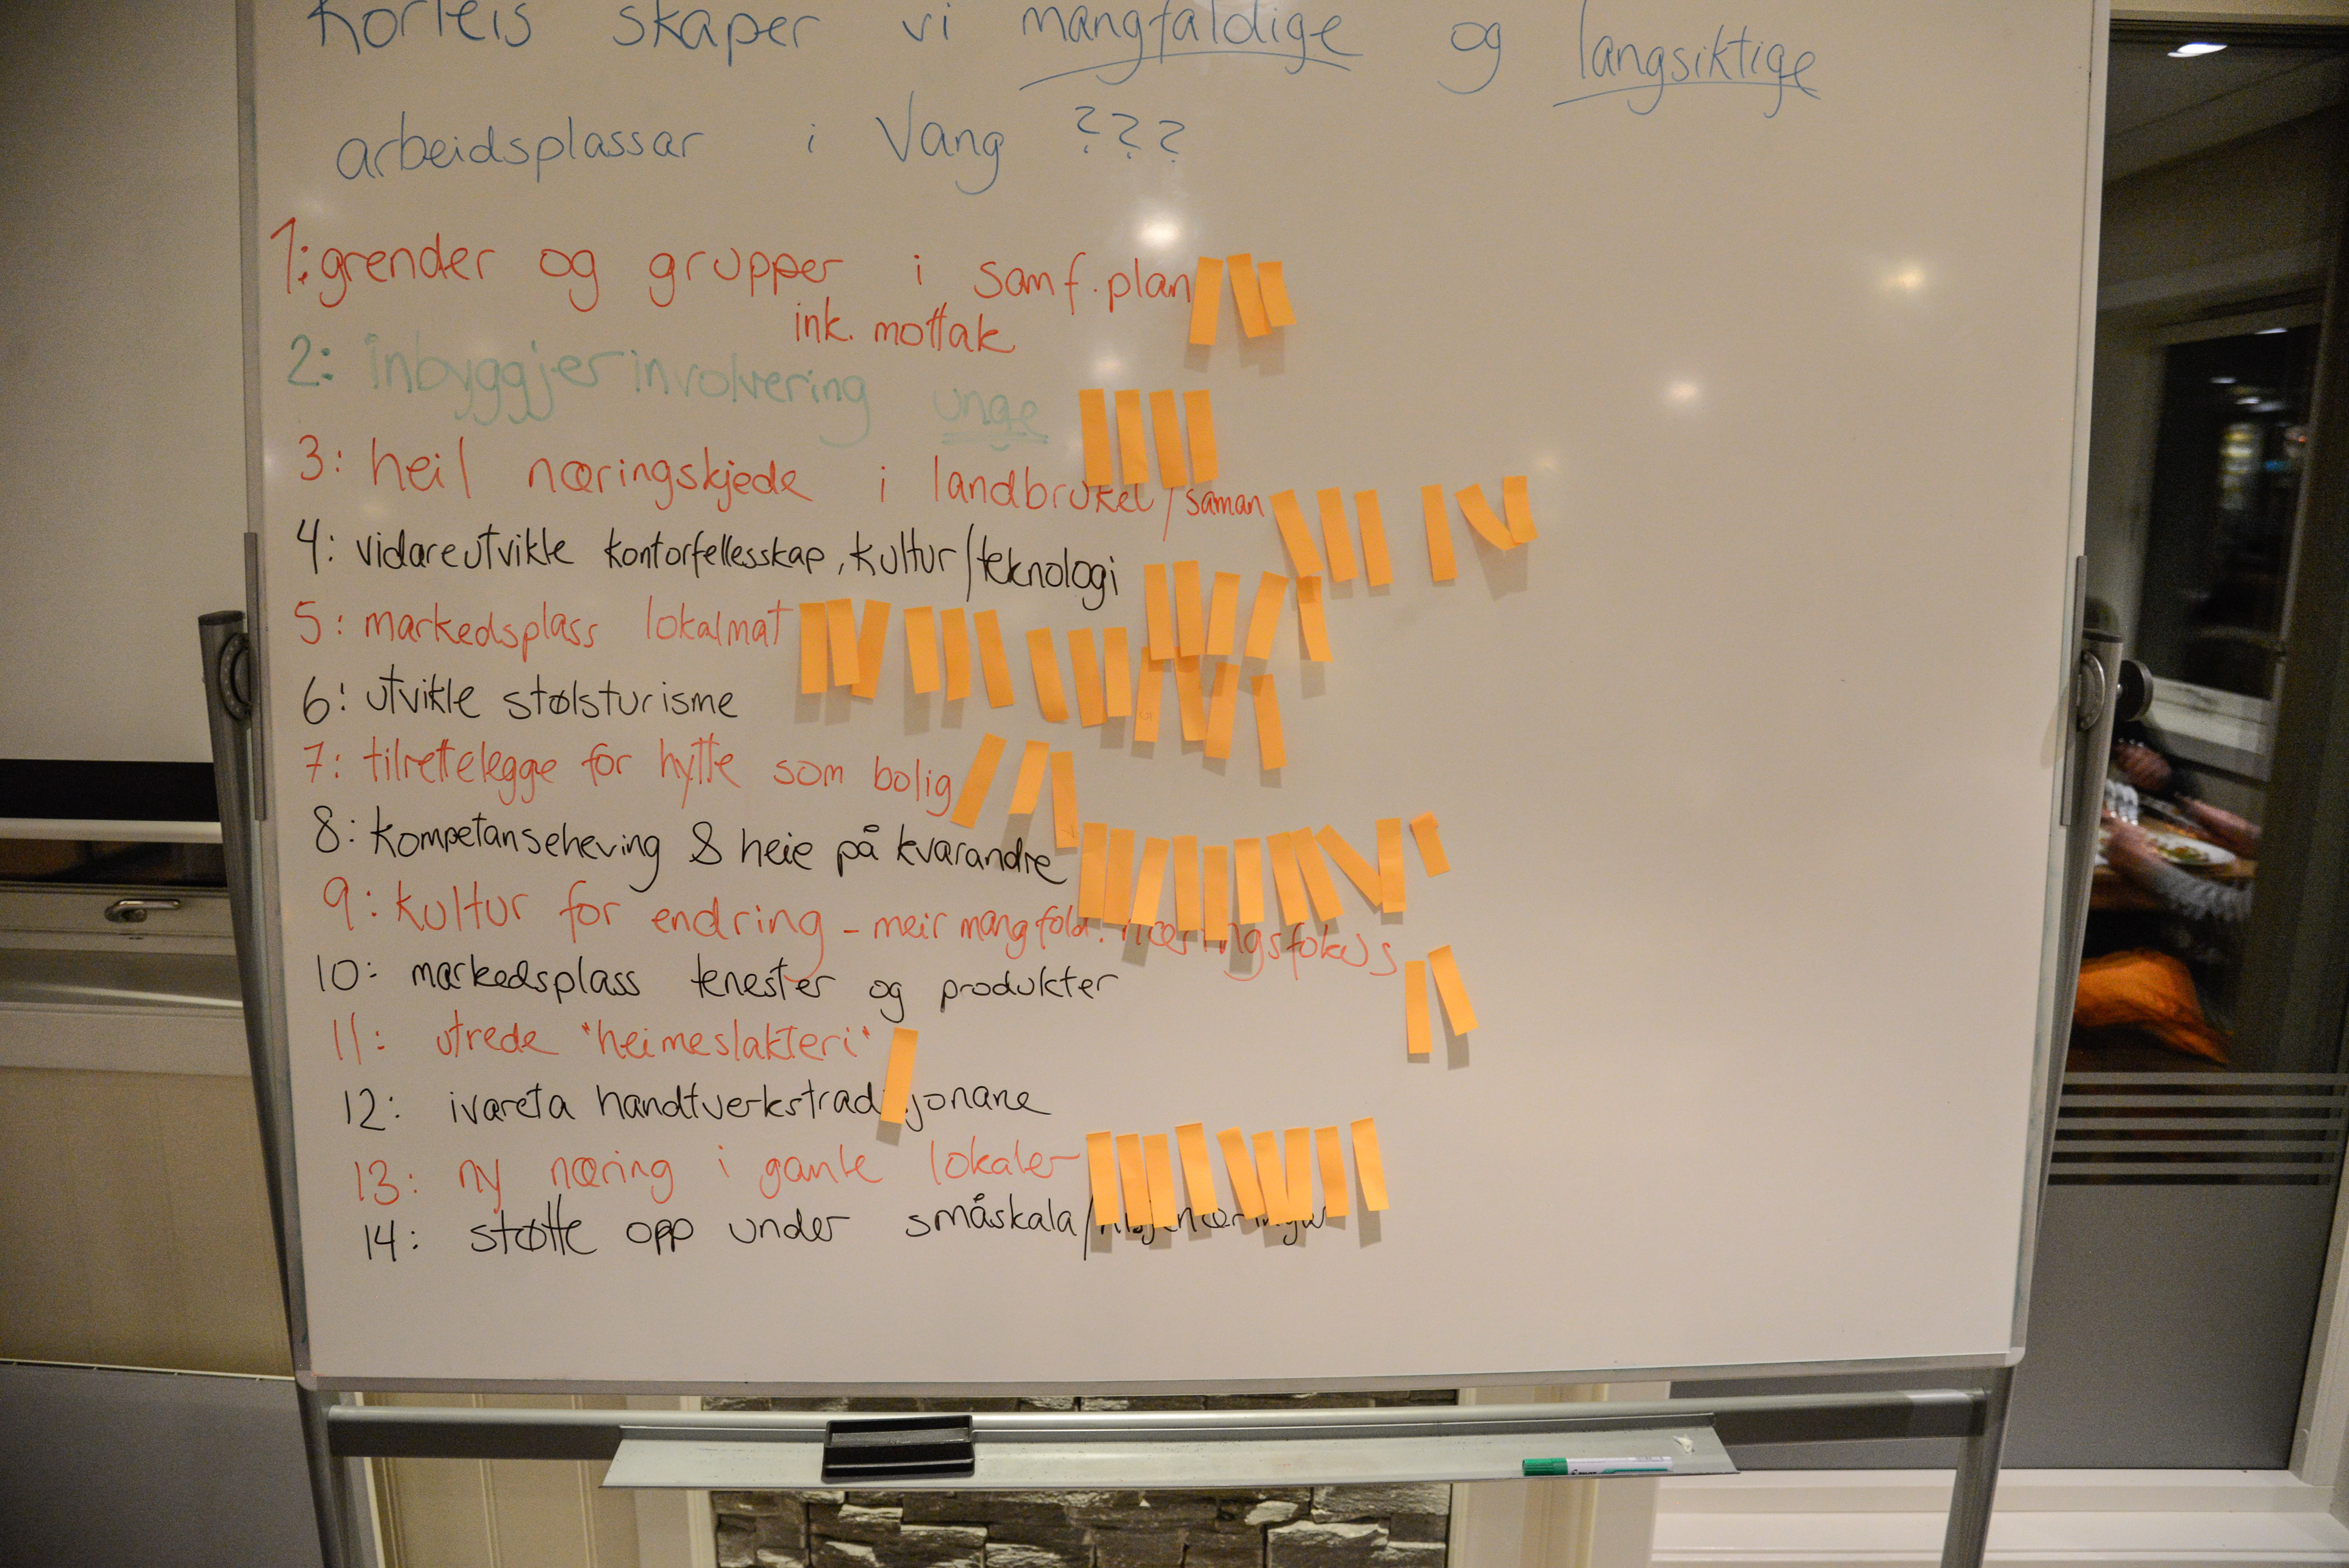 Korleis skaper vi mangfaldige og langsiktige
arbeidsplassar i Vang ???
1: grender og grupper i samf.plan
ink. mottak
2: inbyggjerinvolvering unge
3: heil næringskjede i landbruket/saman
4: vidareutvikle kontorfellesskap, kultur/teknologi
5: markedsplass lokalmat
6: utvikle stølsturisme
7: tilrettelegge for hytte som bolig
8: kompetanseheving & heie på kvarandre
9: kultur for endring - meir mangfold. næringsfokus
10: markedsplass tenester og produkter
11: utrede "heimeslakteri"
12: ivareta handtverkstradisjonane
13: ny næring i gamle lokaler
14: støtte opp under småskala/